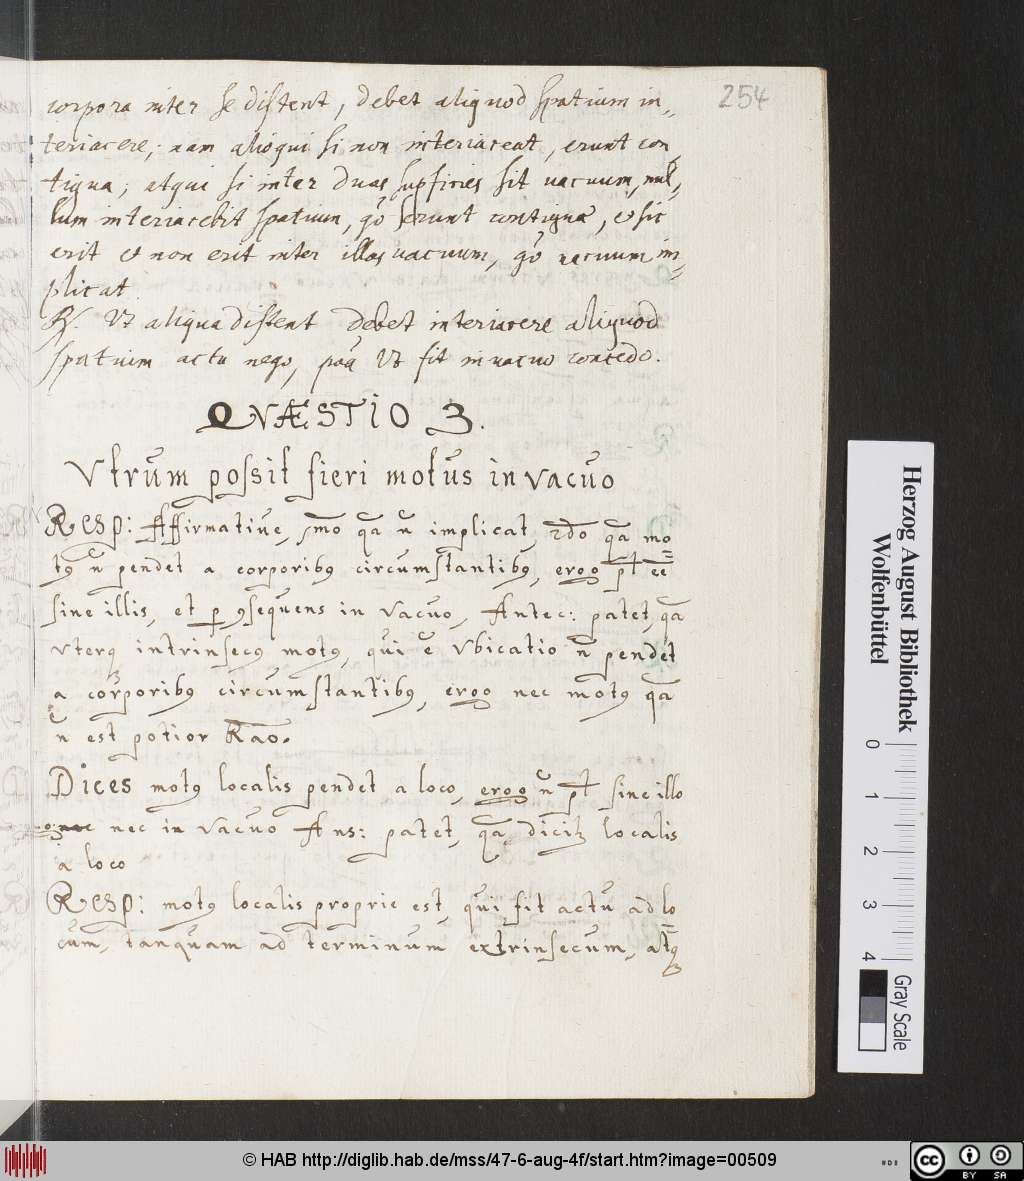 254
corpora inter se distent, debet aliquod spatium in„
teriacere; nam alioqui si non interiaceat, erunt con
tigua; atqui si inter duas supficies sit vacuum, nul„
lum interiacebit spatium, gº erunt contigua, et sic
erit et non erit inter illas vacuum, gº vacuum im„
plicat.
R/. Vt aliqua distent debet interiacere aliquod
spatium actu nego, poã Vt fit in vacuo concedo.
QVÆSTIO 3.
Vtrum possit fieri motus in vacuo
Resp: Affirmatiue, p̄mo qa ñ implicat, 2do qa mo=
tꝰ ñ pendet a corporibꝰ circumstantibꝰ, ergo pt̄ eē
sine illis, et ꝑ ꝯsequens in vacuo, Antec: patet, qa
vterq intrinsecꝰ motꝰ, qui ē Vbicatio ñ pendet
a corporibꝰ circumstantibꝰ, ergo nec motꝰ qa
ñ est potior Rao.
Dices motꝰ localis pendet a loco, ergo ñ pt̄ sine illo
nec in vacuo Ans: patet, qa dicit localis
a loco
Resp: motꝰ localis proprie est, qui fit actu ad lo=
cum, tanquam ad terminum extrinsecum, atq
Herzog August Bibliothek
Wolfenbüttel
0 1 2 3 4
Gray Scale
© HAB http://diglib.hab.de/mss/47-6-aug-4f/start.htm?image=00509
cc BY SA